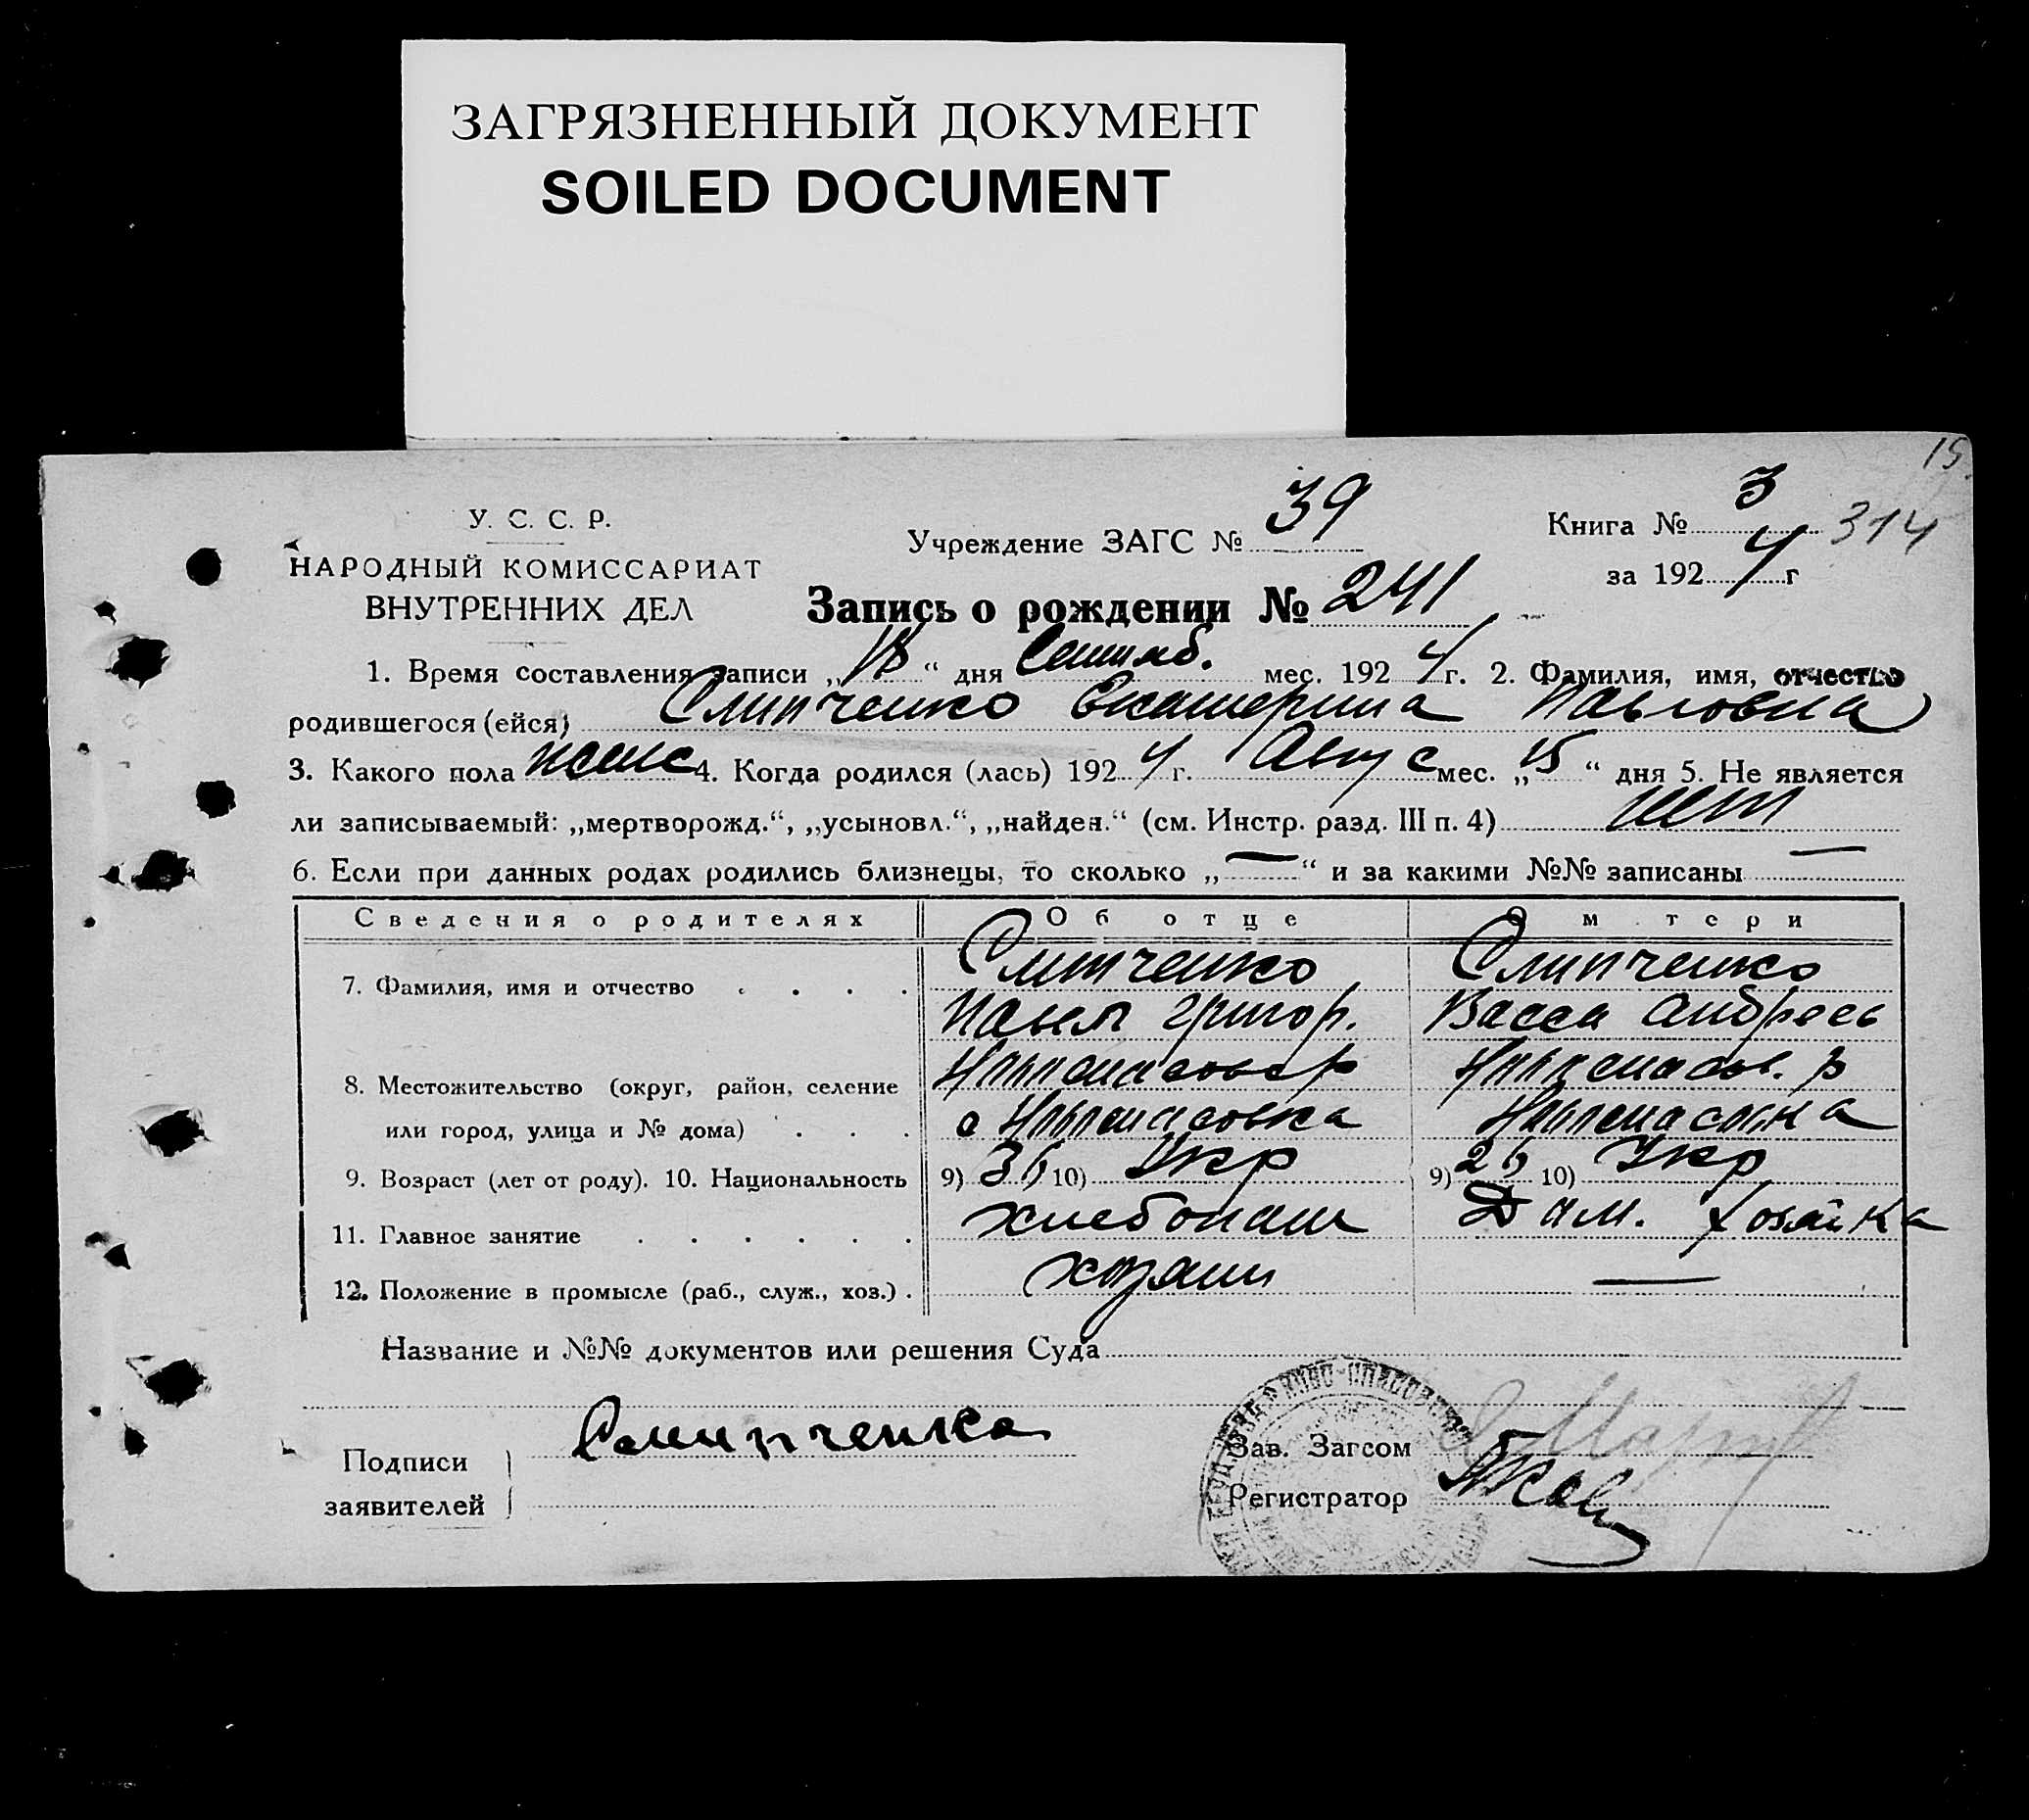 ЗАГРЯЗНЕННЫЙ ДОКУМЕНТ
SOILED DOCUMENT
15
У. С. С. Р.
НАРОДНЫЙ КОМИССАРИАТ
ВНУТРЕННИХ ДЕЛ
Учреждение ЗАГС № 39
Книга № 3 314
за 1924 г
Запись о рождении № 241
1. Время составления записи „18“ дня Сентяб. мес. 1924 г. 2. Фамилия, имя, отчество
родившегося (ейся) Слипченко Екатерина Павловна
3. Какого пола женс 4. Когда родился (лась) 1924 г. Авгус мес. „15“ дня 5. Не является
ли записываемый: „мертворожд.“, „усыновл.“, „найден.“ (см. Инстр. разд. III п. 4) нет
6. Если при данных родах родились близнецы, то сколько „—“ и за какими №№ записаны —
Сведения о родителях Об отце О м тери
7. Фамилия, имя и отчество . . . . Слипченко Слипченко
Павел Григор. Васса Андреев
8. Местожительство (округ, район, селение
или город, улица и № дома) . . .
9. Возраст (лет от роду). 10. Национальность 9) 36 10) Укр 9) 26 10) Укр
11. Главное занятие . . . . . . хлебопаш Дам. хозяйка
12. Положение в промысле (раб., служ., хоз.) . хозяин —
Название и №№ документов или решения Суда
Подписи
заявителей
Слипченка
Зав. Загсом
Регистратор